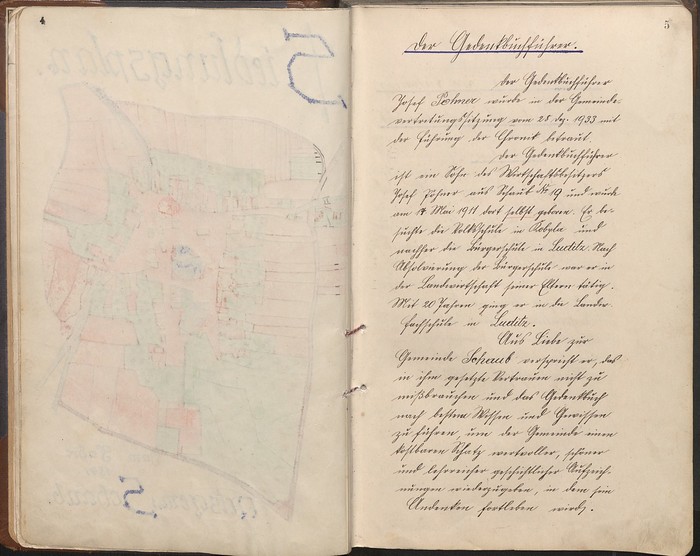 4
5
Der Gedenkbuchführer.
Der Gedenkbuchführer
Josef Pohner wurde in der Gemeinde-
vertretungssitzung vom 28. Dez. 1933 mit
der Führung der Chronik betraut.
Der Gedenkbuchführer
ist ein Sohn des Wirtschaftsbesitzers
Josef Pohner aus Schaub Nr. 19 und wurde
am Mai 1911 dort selbst geboren. Er be-
suchte die Volksschule in Kobyla und
nachher die Bürgerschule in Luditz. Nach
Absolvierung der Bürgerschule war er in
der Landwirtschaft seiner Eltern tätig.
Mit 20 Jahren ging er in die Landw.
Fachschule in Luditz.
Aus Liebe zur
Gemeinde Schaub verspricht er, das
in ihm gesetzte Vertrauen nicht zu
mißbrauchen und das Gedenkbuch
nach bestem Wissen und Gewissen
zu führen, um der Gemeinde einen
kostbaren Schatz wertvoller, schöner
und lehrreicher geschichtlicher Aufzeich-
nungen wiederzugeben, in dem sein
Andenken fortleben wird.